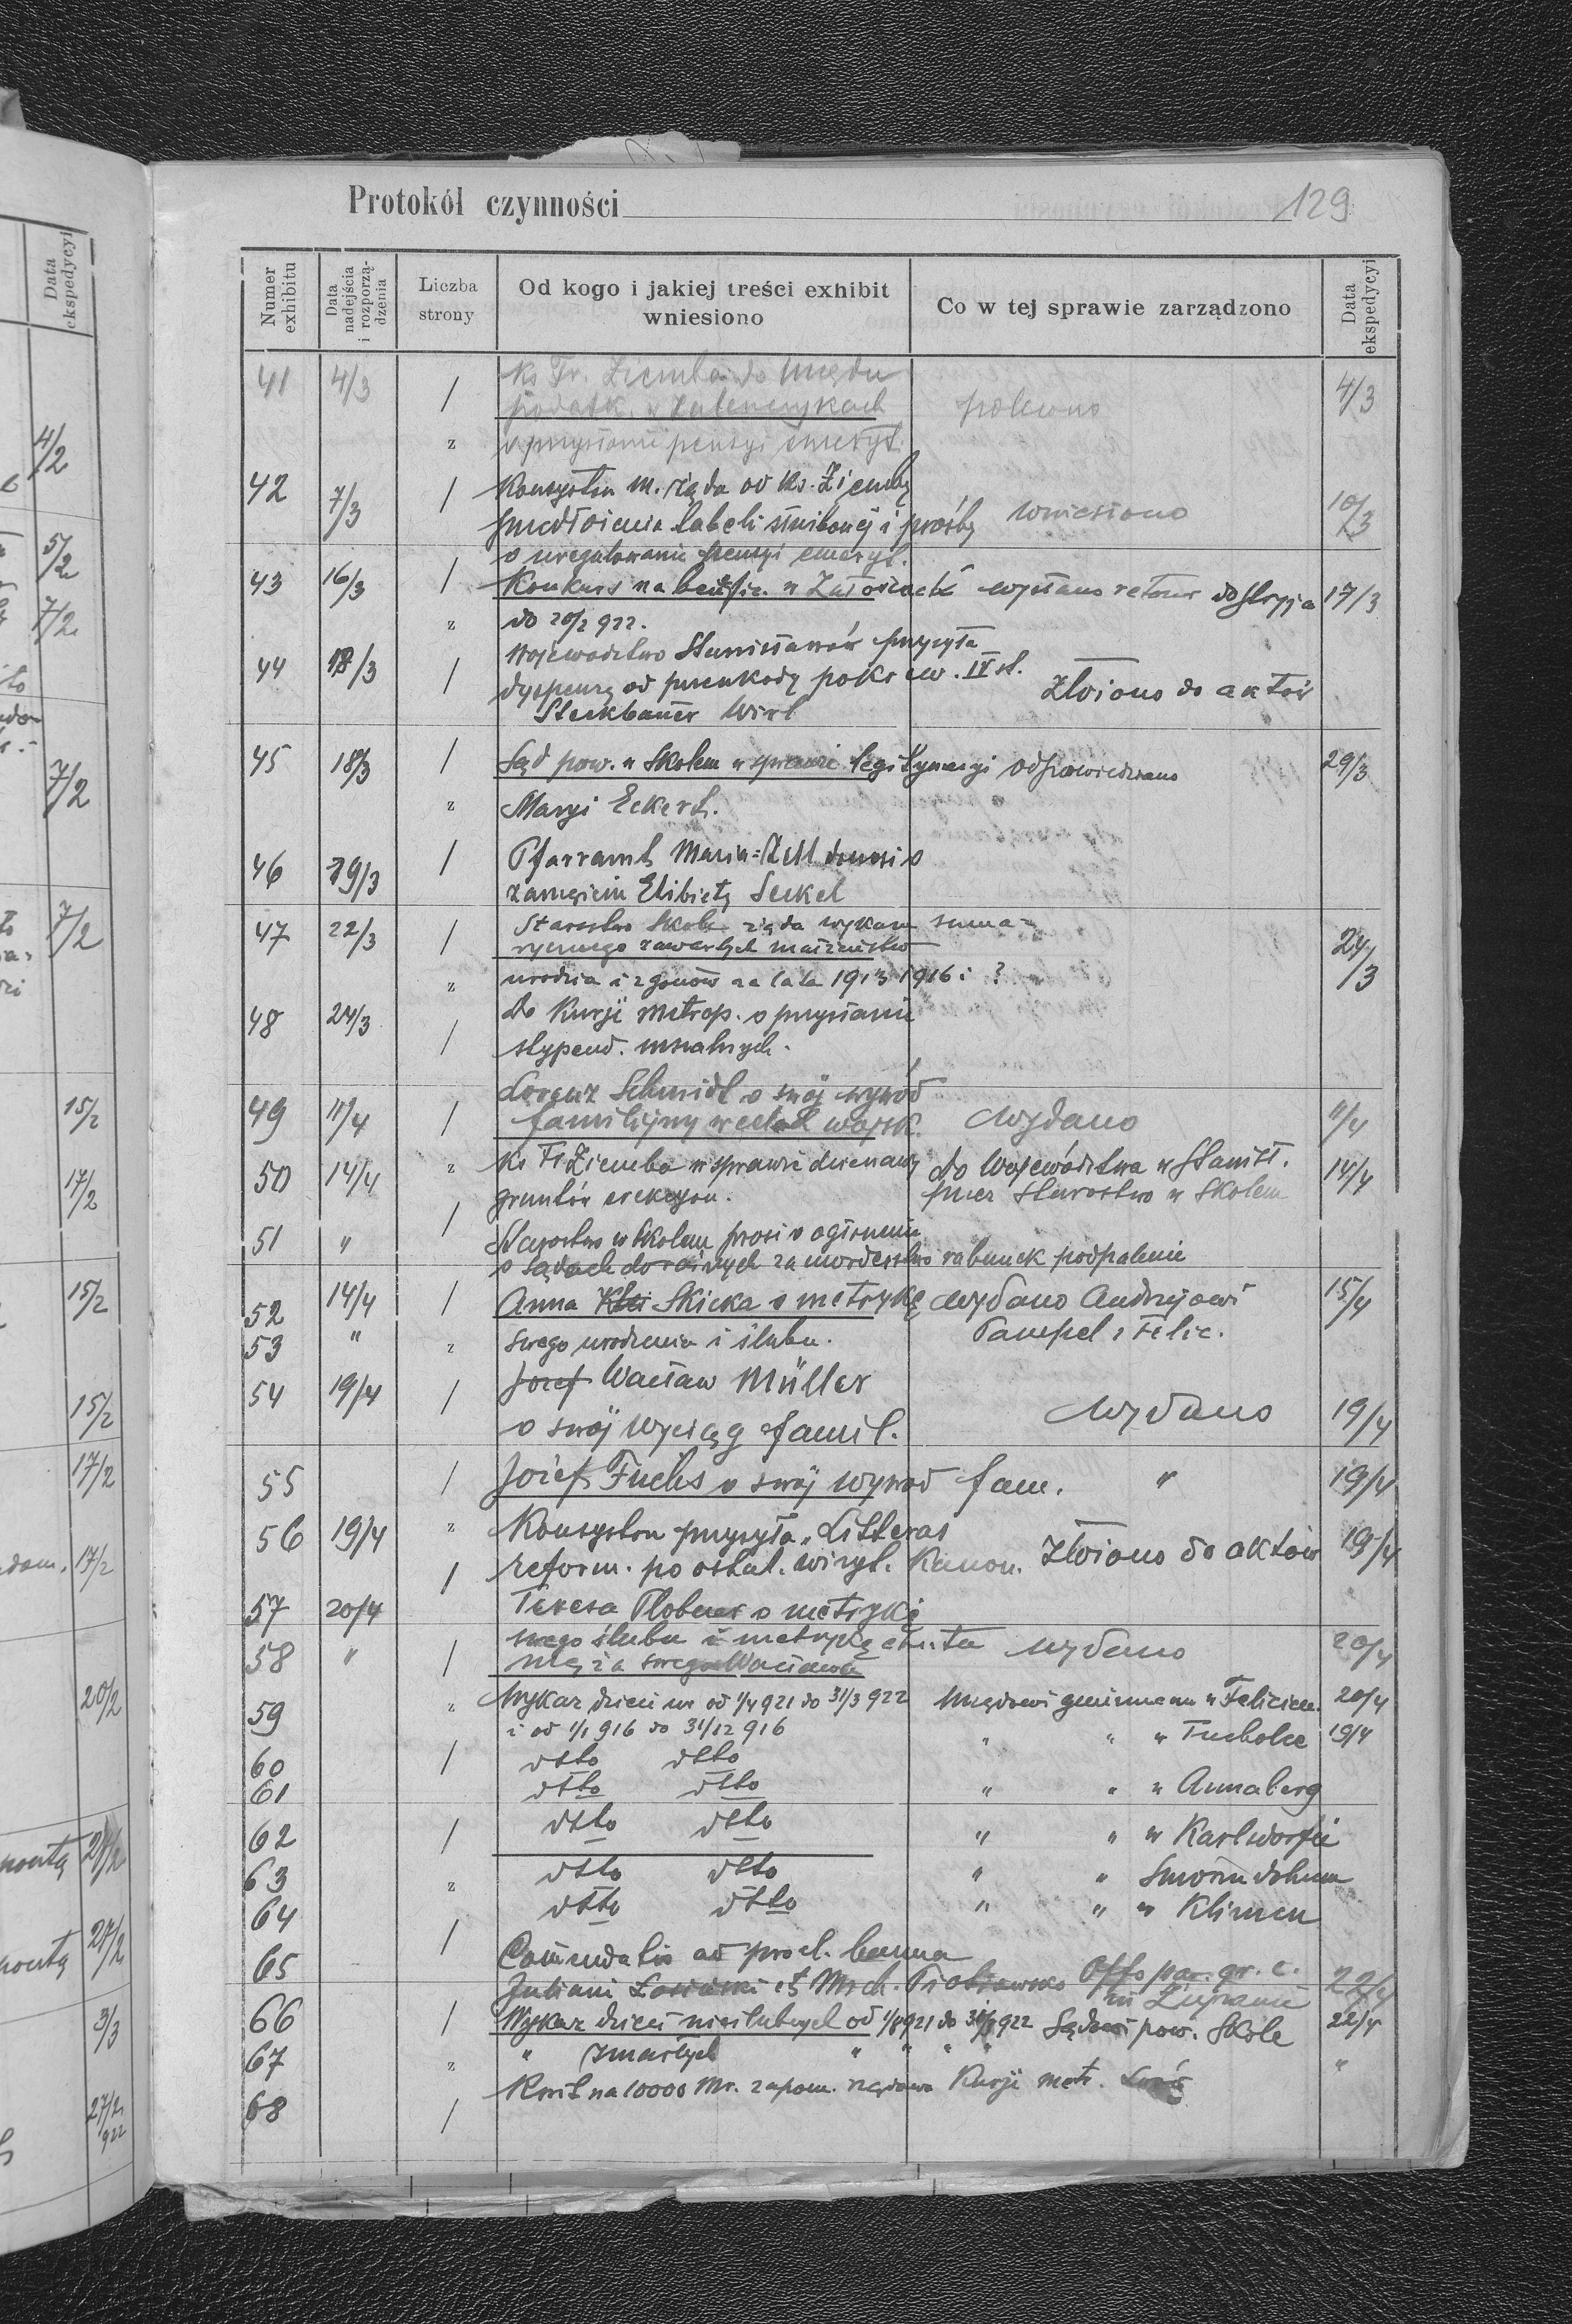 Protokół czynności 129
Numer exhibitu
Data nadejścia i rozporządzenia
Liczba strony
Od kogo i jakiej treści exhibit wniesiono
Co w tej sprawie zarządzono
Data ekspedycyj
41 4/3 / ks Fr. Ziemba do Urzędu 4/3
podatk. w Zaleszczykach polecono
o przysłanie pensyi emeryt.
42 7/3 / Konsystorz m. żąda od ks. Ziemby
przedłożenia tabeli służbowej i prośby wniesiono 10/3
o uregulowanie pensyi emeryt.
43 16/3 / Konkurs na benefic. w Załoścach wysłano retour do Stryja 17/3
do 20/2 922.
44 18/3 / Województwo Stanisławów przysyła
dyspensę od przeszkody pokrew. IV st. złożono do aktów
Steckbauer Wirt
45 18/3 / Sąd pow. w Skolem w sprawie legitymacyi odpowiedziano 29/3
Maryi Eckert.
46 19/3 / Pfarramt Maria-Zell donosi o
zamęściu Elżbiety Seckel
47 22/3 / Starostwo Skole żąda wykazu suma-
rycznego zawartych małżeństw 24/3
urodzin i zgonów za lata 1913 1916 i ?
48 24/3 / do Kurji metrop. o przysłanie
stypend. mszalnych.
49 11/4 / Lorenz Schmidt o swój wywód
familijny w celach wojsk. wydano 11/4
50 14/4 " ks Fr Ziemba w sprawie dzierżawy do Województwa w Stanisł. 14/4
gruntów erekcyon. przez Starostwo w Skolem
51 " / Starostwo w Skolem prosi o ogłoszenie
o sądach doraźnych za morderstwo rabunek podpalenie
52 14/4 / Anna Skicka o metrykę wydano Andrzejowi 15/4
53 " " swego urodzenia i ślubu. Pampel z Felic.
54 19/4 / Józef Wacław Müller
o swój wyciąg famil. wydano 19/4
55 / Józef Fuchs o swój wywód fam. " 19/4
56 19/4 " Konsystorz przysyła "Litteras
/ reform. po ostat. wizyt. Kanon. złożono do aktów 19/4
57 20/4 Teresa Plobner o metrykę
58 " / swego ślubu i metrykę chrztu wydano 20/4
męża swego Wacława
59 " Wykaz dzieci ur od 1/4 921 do 31/3 922 Urzędowi gminnemu w Felicien. 20/4
i od 1/1 916 do 31/12 916 " " " Tucholce 19/4
60 / dtto dtto
61 dtto dtto " " w Annaberg
62 / dtto dtto " " w Karlsdorfie
63 " dtto dtto " " Smorzu dolnem
64 dtto dtto " " w Klimcu
65 / Commendatio ad procl. banna
Juliani et Mich. Piotrowsko Offo par. gr. c. 22/4
in Żupanie
66 / Wykaz dzieci nieślubnych od 1/1 921 do 31/3 922 Sądowi pow. Skole 22/4
67 " " zmarłych " " " " "
68 / Kwit na 10000 Mr. zapom. rządowa Kurji metr. Lwów
4/2
5/2
7/2
7/2
7/2
15/2
17/2
15/2
15/2
17/2
17/2
20/2
27/2
27/2
3/3
27/2 922